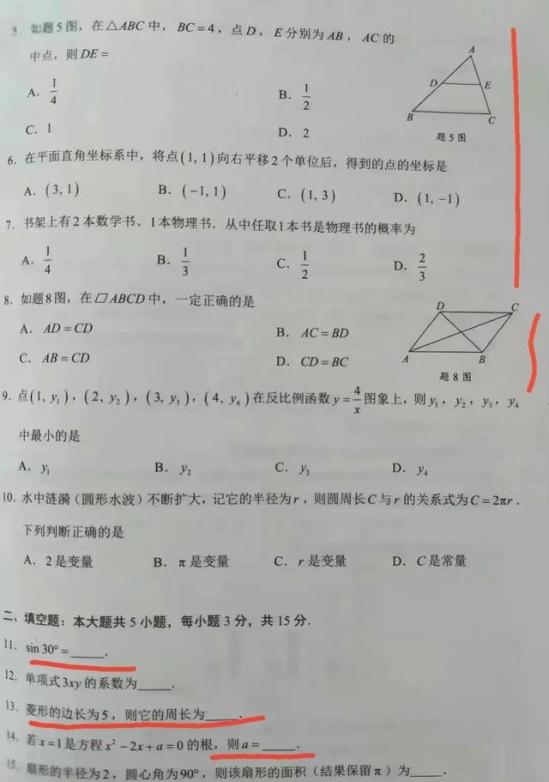 5. 如题5图，在△ABC中，BC=4，点D，E分别为AB，AC的
中点，则DE=
A. 1/4
B. 1/2
C. 1
D. 2
A
D
E
B
C
题5图
6. 在平面直角坐标系中，将点(1, 1)向右平移2个单位后，得到的点的坐标是
A. (3, 1) B. (-1, 1) C. (1, 3) D. (1, -1)
7. 书架上有2本数学书、1本物理书．从中任取1本书是物理书的概率为
A. 1/4 B. 1/3 C. 1/2 D. 2/3
8. 如题8图，在▱ABCD中，一定正确的是
A. AD=CD B. AC=BD
C. AB=CD D. CD=BC
D
C
A
B
题8图
9. 点(1, y₁)，(2, y₂)，(3, y₃)，(4, y₄)在反比例函数y=4/x图象上，则y₁，y₂，y₃，y₄
中最小的是
A. y₁ B. y₂ C. y₃ D. y₄
10. 水中涟漪（圆形水波）不断扩大，记它的半径为r，则圆周长C与r的关系式为C=2πr．
下列判断正确的是
A. 2是变量 B. π是变量 C. r是变量 D. C是常量
二、填空题：本大题共5小题，每小题3分，共15分．
11. sin30°=_____．
12. 单项式3xy的系数为_____．
13. 菱形的边长为5，则它的周长为_____．
14. 若x=1是方程x²-2x+a=0的根，则a=_____．
15. 扇形的半径为2，圆心角为90°，则该扇形的面积（结果保留π）为_____．